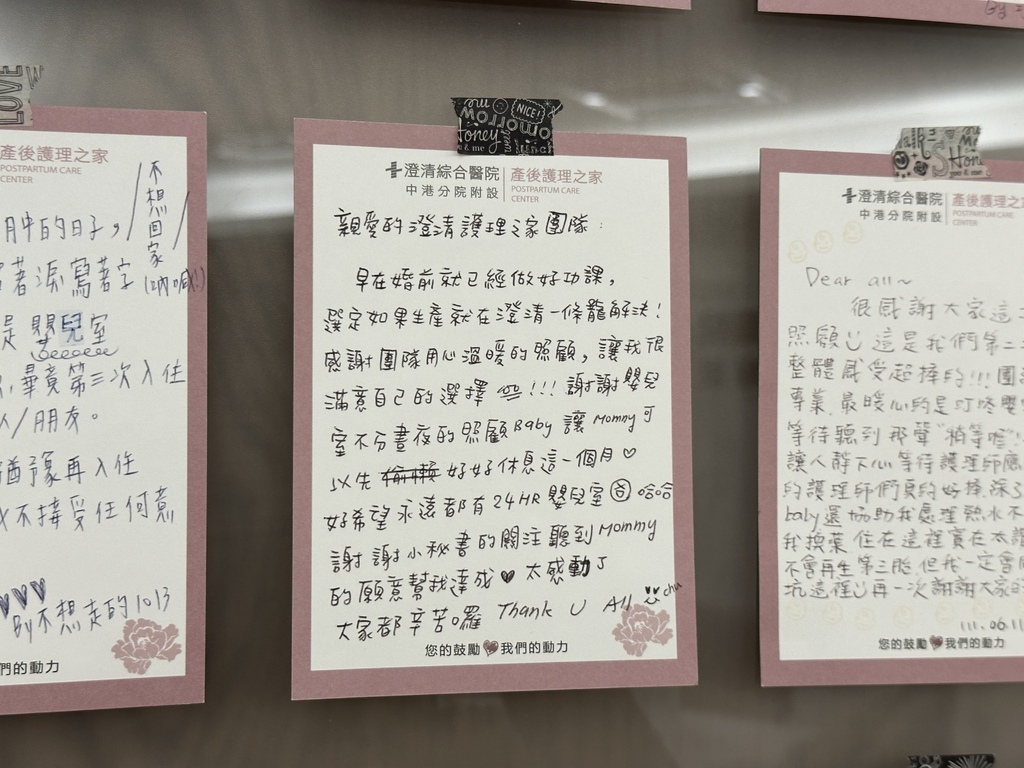 By
LOVE
產後護理之家
POSTPARTUM CARE
CENTER
月中的日子,/不想回家/
著淚寫著字(吶喊!)
是嬰兒室
畢竟第三次入住
人/朋友。
猶豫再入住
不接受任何意
♥♥♥
By不想走的1013
們的動力
NICE!
Tomorrow
Honey
& me
澄清綜合醫院 產後護理之家
中港分院附設 POSTPARTUM CARE
CENTER
親愛的澄清護理之家團隊:
早在婚前就已經做好功課,
選定如果生產就在澄清一條龍解決!
感謝團隊用心溫暖的照顧,讓我很
滿意自己的選擇!!!謝謝嬰兒
室不分晝夜的照顧Baby 讓 Mommy可
以先偷懶好好休息這一個月♡
好希望永遠都有24HR嬰兒室 哈哈
謝謝小秘書的關注聽到Mommy
的願意幫我達成♥ 太感動了
大家都辛苦囉 Thank U All chu
您的鼓勵♥我們的動力
澄清綜合醫院 產後護理之
中港分院附設 POSTPARTUM CA
CENTER
Dear all~
很感謝大家這
照顧 這是我們第二
整體感受超棒的!!!團
專業,最暖心的是叮咚嬰
等待聽到那聲"稍等喔"!
讓人靜下心等待護理師
的護理師們真的好棒,除了
baby還協助我處理熱水不
我換藥 住在這裡實在太
不會再生第三胎,但我一定會
坑這裡 再一次謝謝大家的
111.06.11
您的鼓勵♥我們的動力